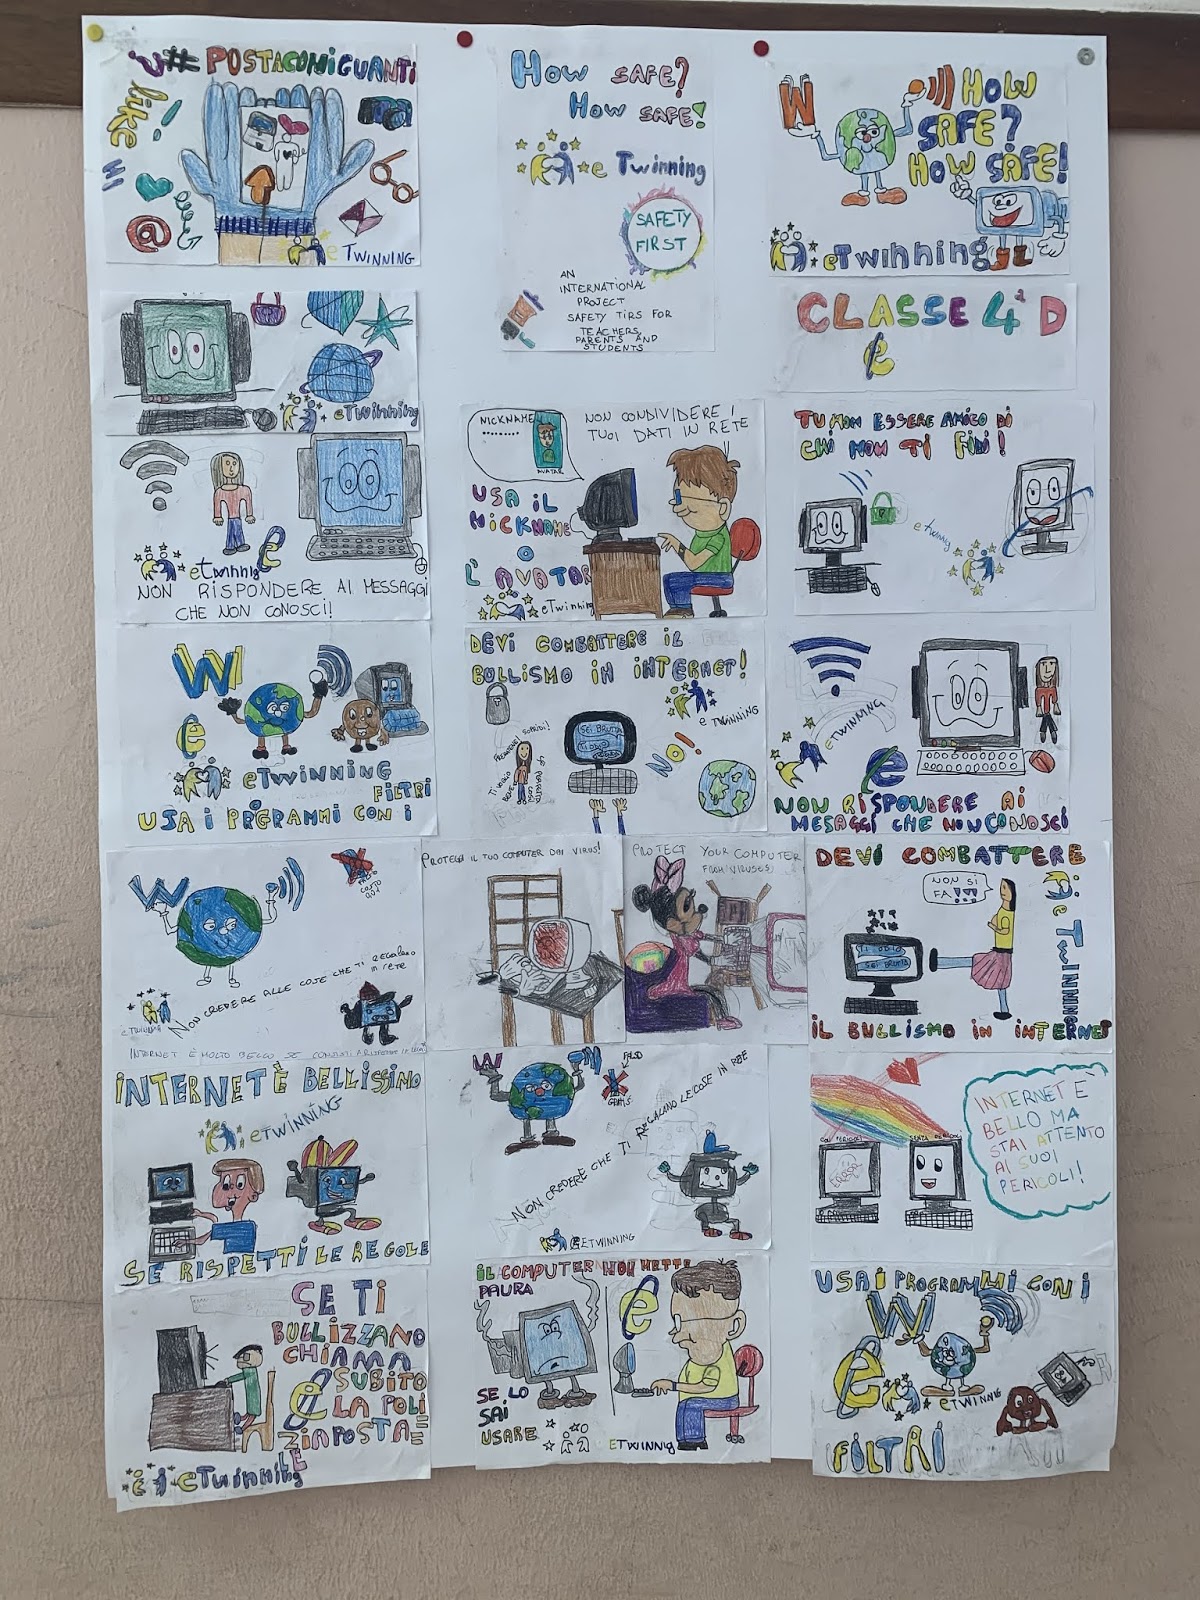 #POSTACONIGUANTI
like!
HI
@
eTWINNING
HOW SAFE?
HOW SAFE!
eTwinning
SAFETY
FIRST
AN
INTERNATIONAL
PROJECT
SAFETY TIPS FOR
TEACHERS,
PARENTS AND
STUDENTS
W
HOW
SAFE?
HOW SAFE!
eTwinning
CLASSE 4ª D
e
eTwinning
eTwinnig
NON RISPONDERE AI MESSAGGI
CHE NON CONOSCI!
NICKNAME
AVATAR
NON CONDIVIDERE I
TUOI DATI IN RETE
USA IL
NICKNAME
O
L'AVATAR
eTwinning
TU NON ESSERE AMICO DI
CHI NON TI FIDI!
eTwinnig
W
e
eTWINNING
FILTRI
USA i PRGRAMMI CON i
DEVI COMBATTERE iL
BULLISMO IN INTERNET!
eTWINNING
SEI BRUTTA
TI ODIO
NO!
eTWINNING
e
NON RISPONDERE AI
MESAGGI CHE NON CONOSCI
W
NON CREDERE ALLE COSE CHE TI REGALANO
in RETE
eTWINNING
PROTEGGI IL TUO COMPUTER DAI VIRUS!
PROTECT YOUR COMPUTER
FROM VIRUSES
DEVI COMBATTERE
NON SI
FA!!!
TI ODIO
SEI BRUTTA
eTWINNING
iL BULLISMO IN iNTERNET
INTERNET È BELLISSIMO
eTWINNING
SE RISPETTI LE REGOLE
W
GRATIS
NON CREDERE CHE TI REGALANO LE COSE IN RETE
eETWINNING
CON PERICOLI
SENZA PERICOLI
INTERNET E'
BELLO MA
STAI ATTENTO
AI SUOI
PERICOLI!
SE TI
BULLIZZANO
CHIAMA
SUBITO
LA POLI
ZIA POSTA
LE
eTwinning
iL COMPUTER NON METTE
PAURA
SE LO
SAI
USARE
e
eTWINNIG
USA i PROGRAMMI CON i
W
e
eTWINNING
FILTRI